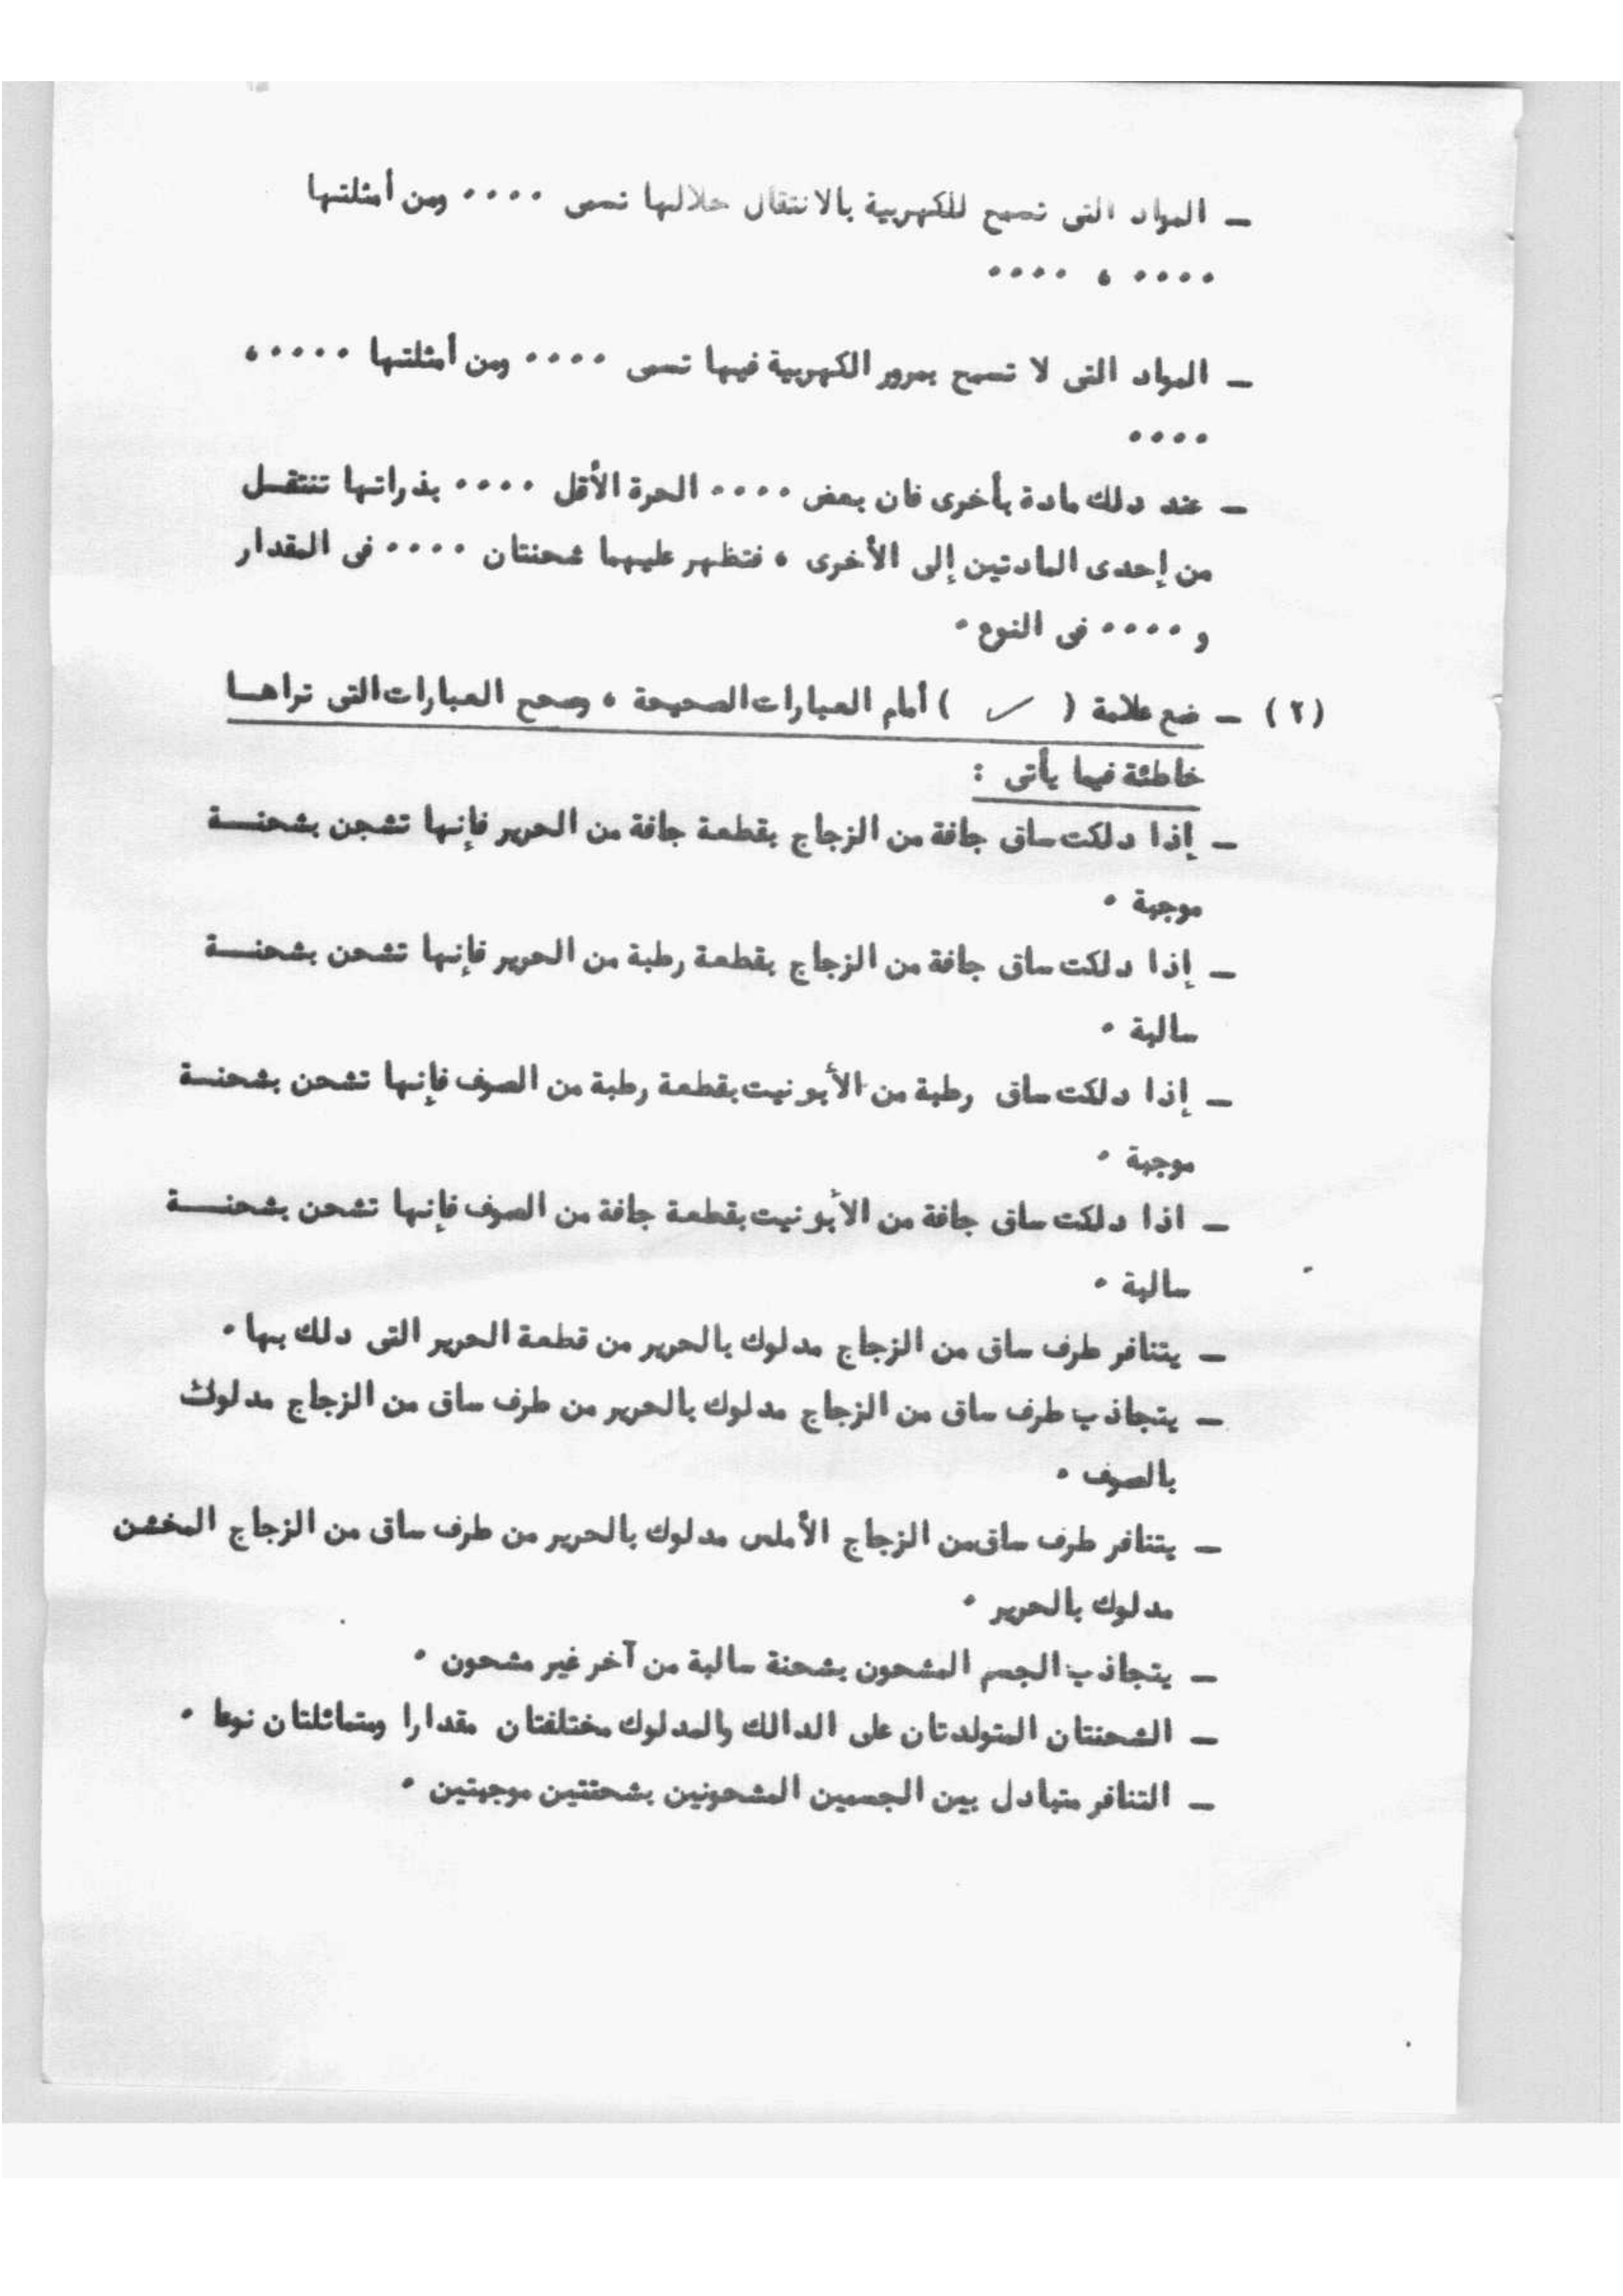 — المواد التى تسمح للكهربية بالانتقال خلالها تسمى ٠٠٠٠ ومن أمثلتها
٠٠٠٠ ، ٠٠٠٠
— المواد التى لا تسمح بمرور الكهربية فيها تسمى ٠٠٠٠ ومن أمثلتها ٠٠٠٠ ،
٠٠٠٠
— عند دلك مادة بأخرى فان بعض ٠٠٠٠ الحرة الأقل ٠٠٠٠ بذراتها تنتقل
من إحدى المادتين إلى الأخرى ، فتظهر عليهما شحنتان ٠٠٠٠ فى المقدار
و ٠٠٠٠ فى النوع ٠
(٢) — ضع علامة ( ✓ ) أمام العبارات الصحيحة ، وصحح العبارات التى تراها
خاطئة فيما يأتى :
— إذا دلكت ساق جافة من الزجاج بقطعة جافة من الحرير فإنها تشجن بشحنة
موجبة ٠
— إذا دلكت ساق جافة من الزجاج بقطعة رطبة من الحرير فإنها تشحن بشحنة
سالبة ٠
— إذا دلكت ساق رطبة من الأبونيت بقطعة رطبة من الصوف فإنها تشحن بشحنة
موجبة ٠
— اذا دلكت ساق جافة من الأبونيت بقطعة جافة من الصوف فإنها تشحن بشحنة
سالبة ٠
— يتنافر طرف ساق من الزجاج مدلوك بالحرير من قطعة الحرير التى دلك بها ٠
— يتجاذب طرف ساق من الزجاج مدلوك بالحرير من طرف ساق من الزجاج مدلوك
بالصوف ٠
— يتنافر طرف ساق من الزجاج الأملس مدلوك بالحرير من طرف ساق من الزجاج المخشن
مدلوك بالحرير ٠
— يتجاذب الجسم المشحون بشحنة سالبة من آخر غير مشحون ٠
— الشحنتان المتولدتان على الدالك والمدلوك مختلفتان مقدارا ومتماثلتان نوعا ٠
— التنافر متبادل بين الجسمين المشحونين بشحنتين موجبتين ٠